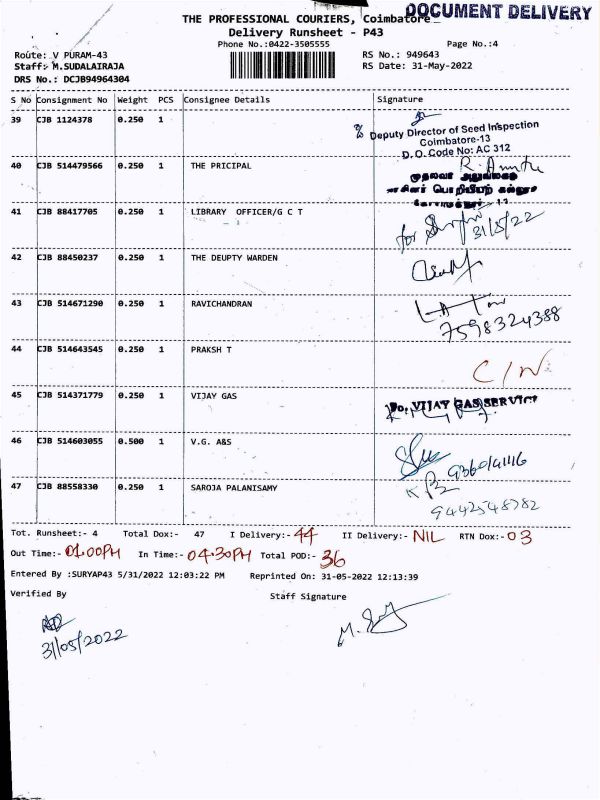 DOCUMENT DELIVERY
THE PROFESSIONAL COURIERS, Coimbatore
Delivery Runsheet - P43
Phone No.:0422-3505555
Page No.:4
Route: V PURAM-43
RS No.: 949643
Staff: M.SUDALAIRAJA
RS Date: 31-May-2022
DRS No.: DCJB94964304
S No Consignment No Weight PCS Consignee Details Signature
39 CJB 1124378 0.250 1
Deputy Director of Seed Inspection
Coimbatore-13
D.O. Code No: AC 312
40 CJB 514479566 0.250 1 THE PRICIPAL
41 CJB 88417705 0.250 1 LIBRARY OFFICER/G C T
for 31/5/22
42 CJB 88450237 0.250 1 THE DEUPTY WARDEN
43 CJB 514671290 0.250 1 RAVICHANDRAN
7598324388
44 CJB 514643545 0.250 1 PRAKSH T
C/N
45 CJB 514371779 0.250 1 VIJAY GAS
VIJAY GAS SERVICE
46 CJB 514603055 0.500 1 V.G. A&S
47 CJB 88558330 0.250 1 SAROJA PALANISAMY
Tot. Runsheet:- 4 Total Dox:- 47 I Delivery:- 44 II Delivery:- NIL RTN Dox:- 03
Out Time:- 01.00PM In Time:- 04.30PM Total POD:- 36
Entered By :SURYAP43 5/31/2022 12:03:22 PM Reprinted On: 31-05-2022 12:13:39
Verified By Staff Signature
31/05/2022